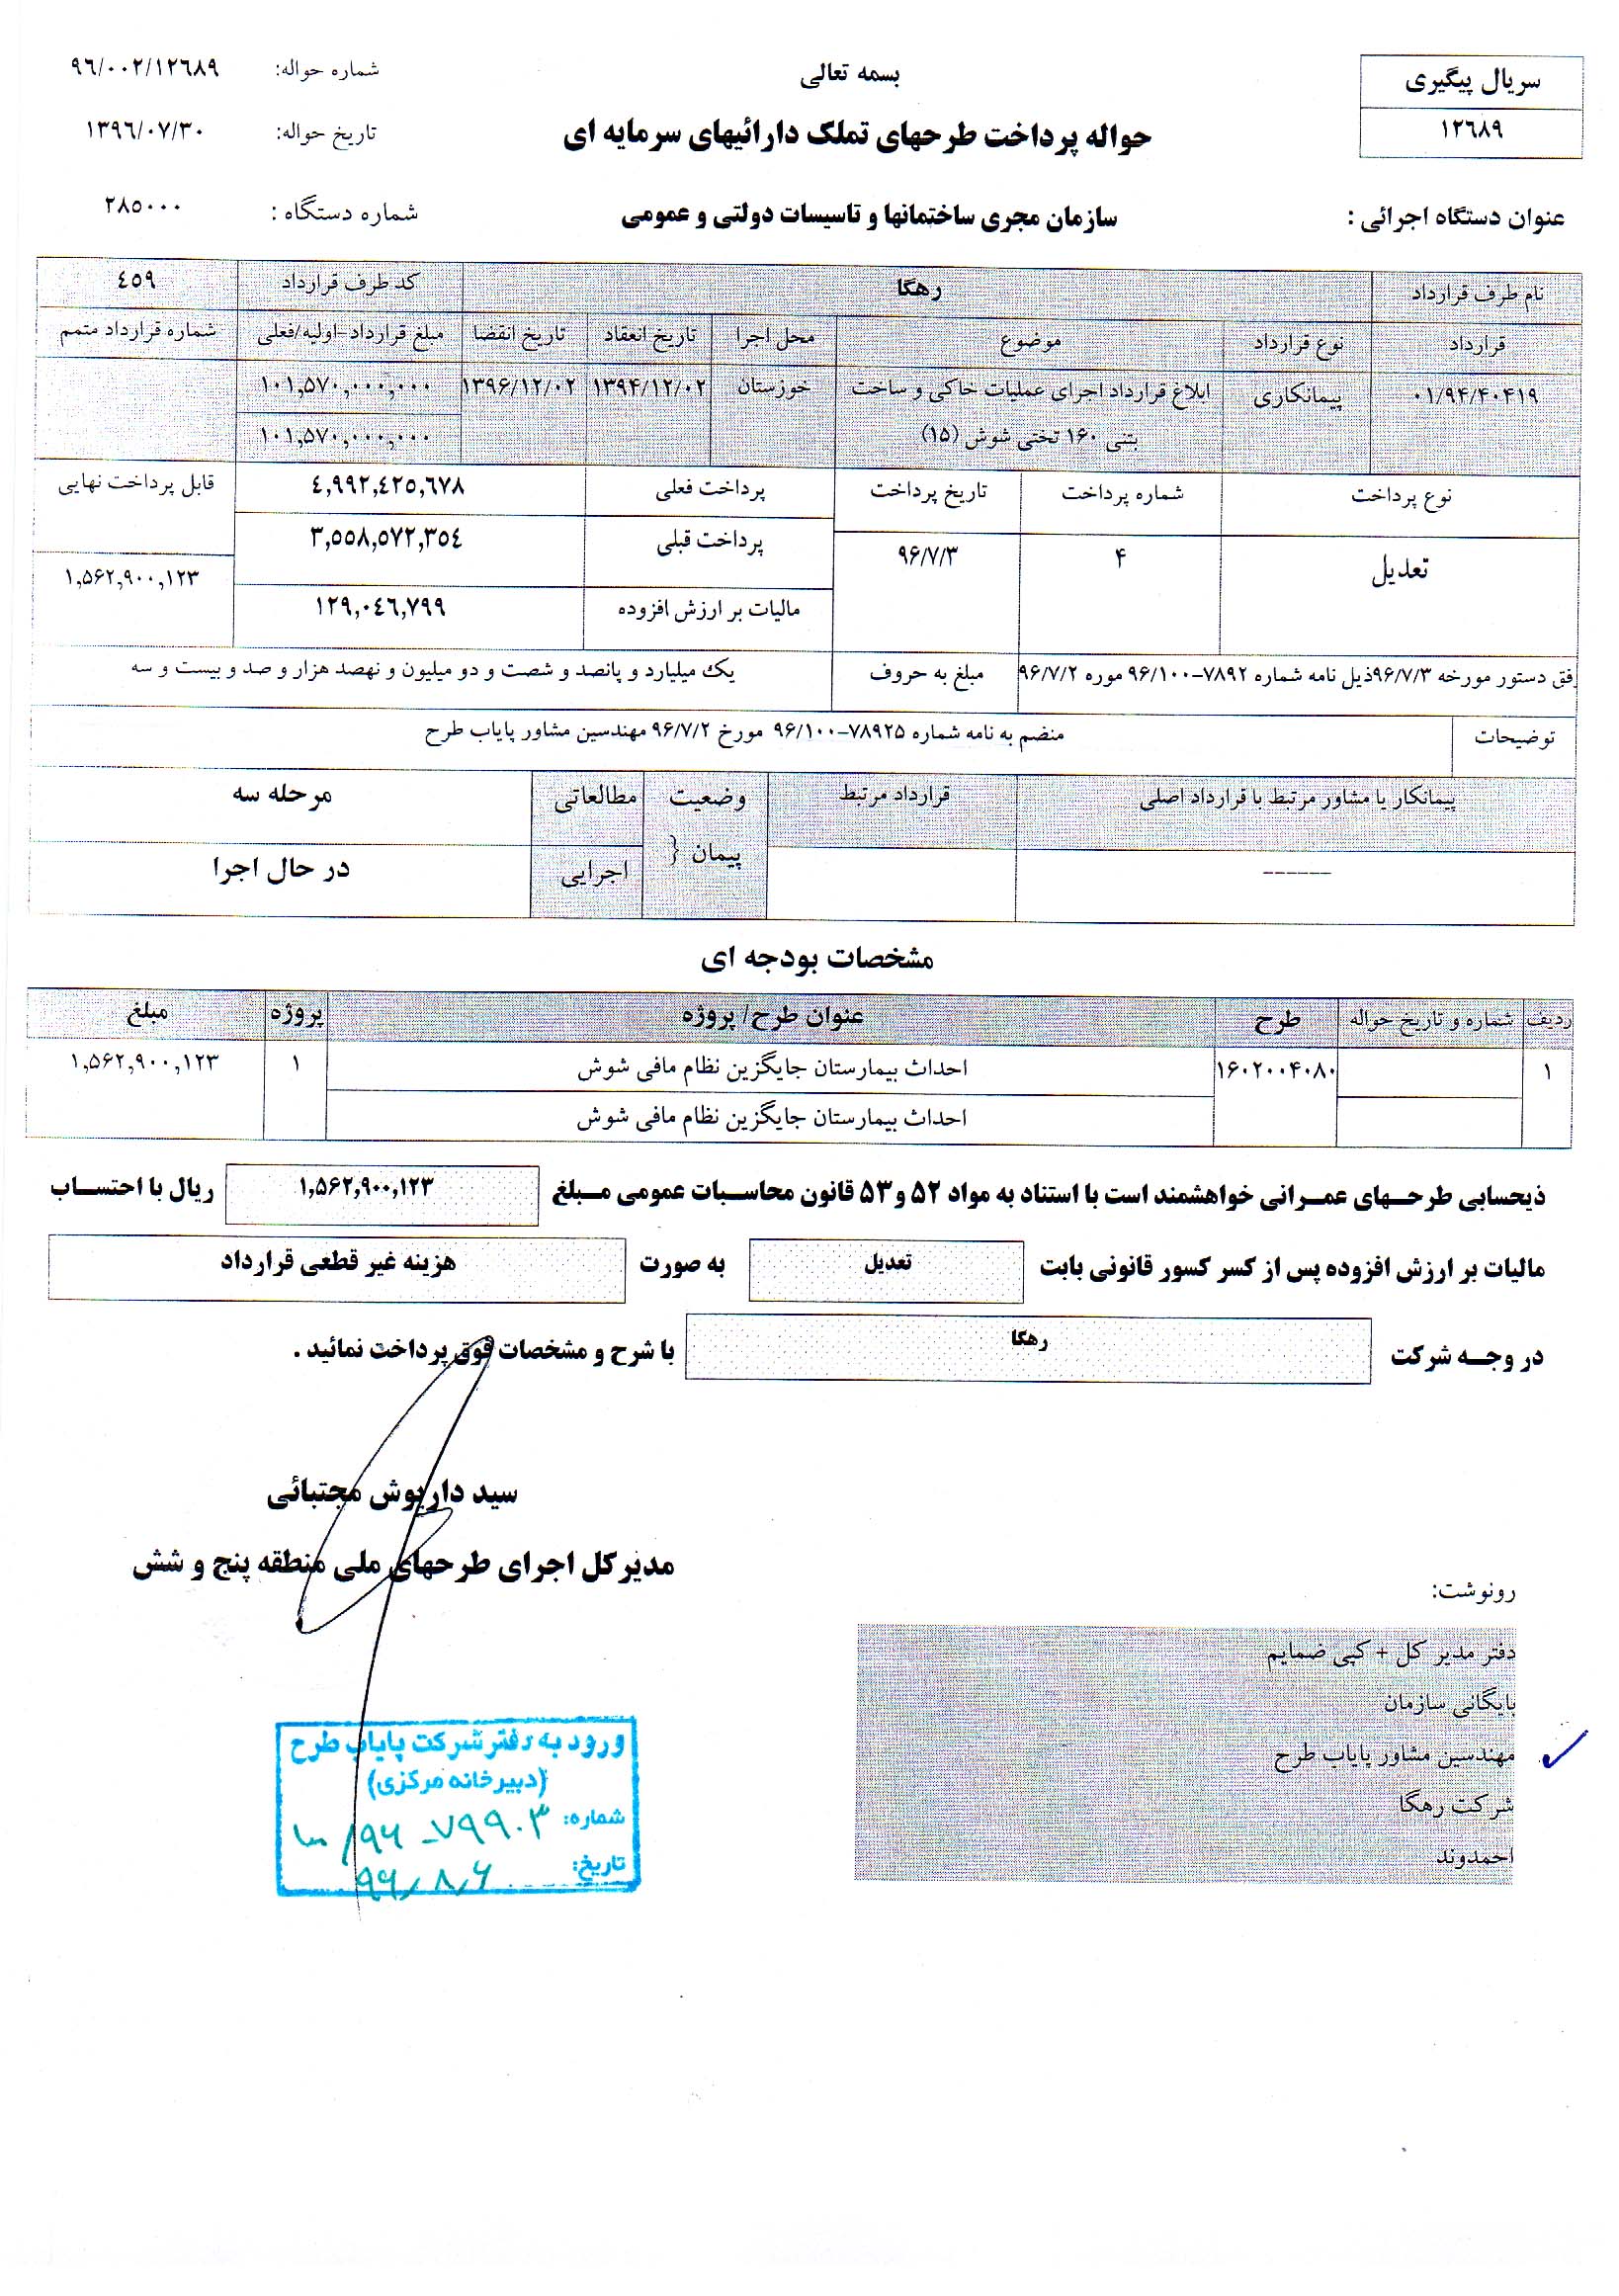 بسمه تعالی
سریال پیگیری
۱۲٦۸۹
شماره حواله: ۹٦/۰۰۲/۱۲٦۸۹
حواله پرداخت طرحهای تملک دارائیهای سرمایه ای
تاریخ حواله: ۱۳۹٦/۰۷/۳۰
عنوان دستگاه اجرائی : سازمان مجری ساختمانها و تاسیسات دولتی و عمومی شماره دستگاه : ۲۸۵۰۰۰
نام طرف قرارداد رهگا کد طرف قرارداد ٤۵۹
قرارداد نوع قرارداد موضوع محل اجرا تاریخ انعقاد تاریخ انقضا مبلغ قرارداد-اولیه/فعلی شماره قرارداد متمم
۰۱/۹۴/۴۰۴۱۹ پیمانکاری ابلاغ قرارداد اجرای عملیات خاکی و ساخت خوزستان ۱۳۹۴/۱۲/۰۲ ۱۳۹۶/۱۲/۰۲ ۱۰۱,۵۷۰,۰۰۰,۰۰۰
بتنی ۱۶۰ تختی شوش (۱۵) ۱۰۱,۵۷۰,۰۰۰,۰۰۰
نوع پرداخت شماره پرداخت تاریخ پرداخت پرداخت فعلی ٤,۹۹۲,٤۲۵,٦۷۸ قابل پرداخت نهایی
تعدیل ۴ ۹۶/۷/۳ پرداخت قبلی ۳,۵۵۸,۵۷۲,۳۵٤
مالیات بر ارزش افزوده ۱۲۹,۰٤٦,۷۹۹ ۱,۵۶۲,۹۰۰,۱۲۳
فق دستور مورخه ۹۶/۷/۳ذیل نامه شماره ۷۸۹۲-۹۶/۱۰۰ موره ۹۶/۷/۲ مبلغ به حروف یک میلیارد و پانصد و شصت و دو میلیون و نهصد هزار و صد و بیست و سه
توضیحات منضم به نامه شماره ۷۸۹۲۵-۹۶/۱۰۰ مورخ ۹۶/۷/۲ مهندسین مشاور پایاب طرح
پیمانکار یا مشاور مرتبط با قرارداد اصلی قرارداد مرتبط وضعیت پیمان { مطالعاتی مرحله سه
------ اجرایی در حال اجرا
مشخصات بودجه ای
ردیف شماره و تاریخ حواله طرح عنوان طرح/ پروژه پروژه مبلغ
۱ ۱۶۰۲۰۰۴۰۸۰ احداث بیمارستان جایگزین نظام مافی شوش ۱ ۱,۵۶۲,۹۰۰,۱۲۳
احداث بیمارستان جایگزین نظام مافی شوش
ذیحسابی طرحهای عمرانی خواهشمند است با استناد به مواد ۵۲ و ۵۳ قانون محاسبات عمومی مبلغ ۱,۵۶۲,۹۰۰,۱۲۳ ریال با احتساب
مالیات بر ارزش افزوده پس از کسر کسور قانونی بابت تعدیل به صورت هزینه غیر قطعی قرارداد
در وجه شرکت رهگا با شرح و مشخصات فوق پرداخت نمائید .
سید داریوش مجتبائی
مدیرکل اجرای طرحهای ملی منطقه پنج و شش
رونوشت:
دفتر مدیر کل + کپی ضمایم
بایگانی سازمان
مهندسین مشاور پایاب طرح
شرکت رهگا
احمدوند
ورود به دفتر شرکت پایاب طرح
(دبیرخانه مرکزی)
شماره: ۷۹۹۰۳-۹۶/۱۰۰
تاریخ: ۹۶/۸/۶